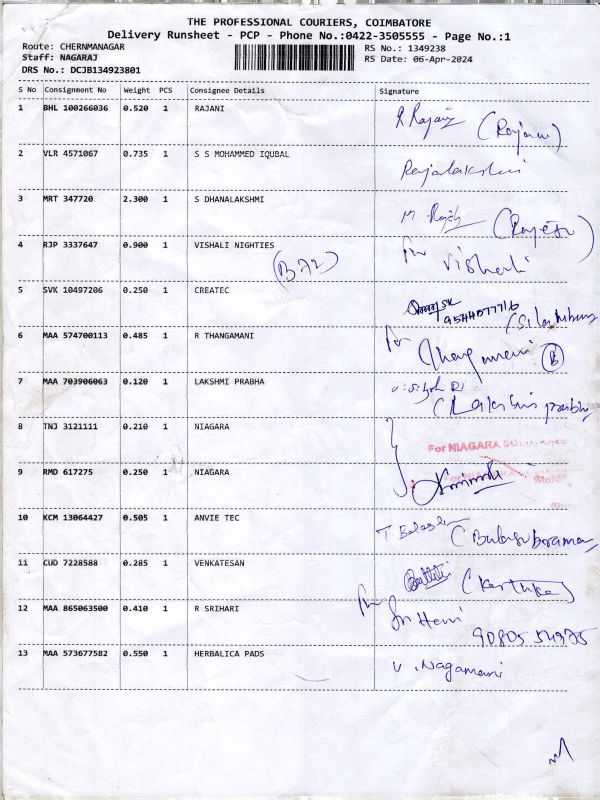 THE PROFESSIONAL COURIERS, COIMBATORE
Delivery Runsheet - PCP - Phone No.:0422-3505555 - Page No.:1
Route: CHERNMANAGAR RS No.: 1349238
Staff: NAGARAJ RS Date: 06-Apr-2024
DRS No.: DCJB134923801
S No Consignment No Weight PCS Consignee Details Signature
1 BHL 100266036 0.520 1 RAJANI R Rajani (Rajani)
2 VLR 4571067 0.735 1 S S MOHAMMED IQUBAL Rajalakshmi
3 MRT 347720 2.300 1 S DHANALAKSHMI M Rajesh (Rajesh)
4 RJP 3337647 0.900 1 VISHALI NIGHTIES for Vishali
(B72)
5 SVK 10497206 0.250 1 CREATEC
9544077716
6 MAA 574700113 0.485 1 R THANGAMANI for Thangamani B
7 MAA 703906063 0.120 1 LAKSHMI PRABHA (Lakshmi prabha
8 TNJ 3121111 0.210 1 NIAGARA For NIAGARA
9 RMD 617275 0.250 1 NIAGARA
10 KCM 13064427 0.505 1 ANVIE TEC (Balasubramani
11 CUD 7228588 0.285 1 VENKATESAN (Karthika)
12 MAA 865063500 0.410 1 R SRIHARI for Sri Hari
90805 54975
13 MAA 573677582 0.550 1 HERBALICA PADS V. Nagamani